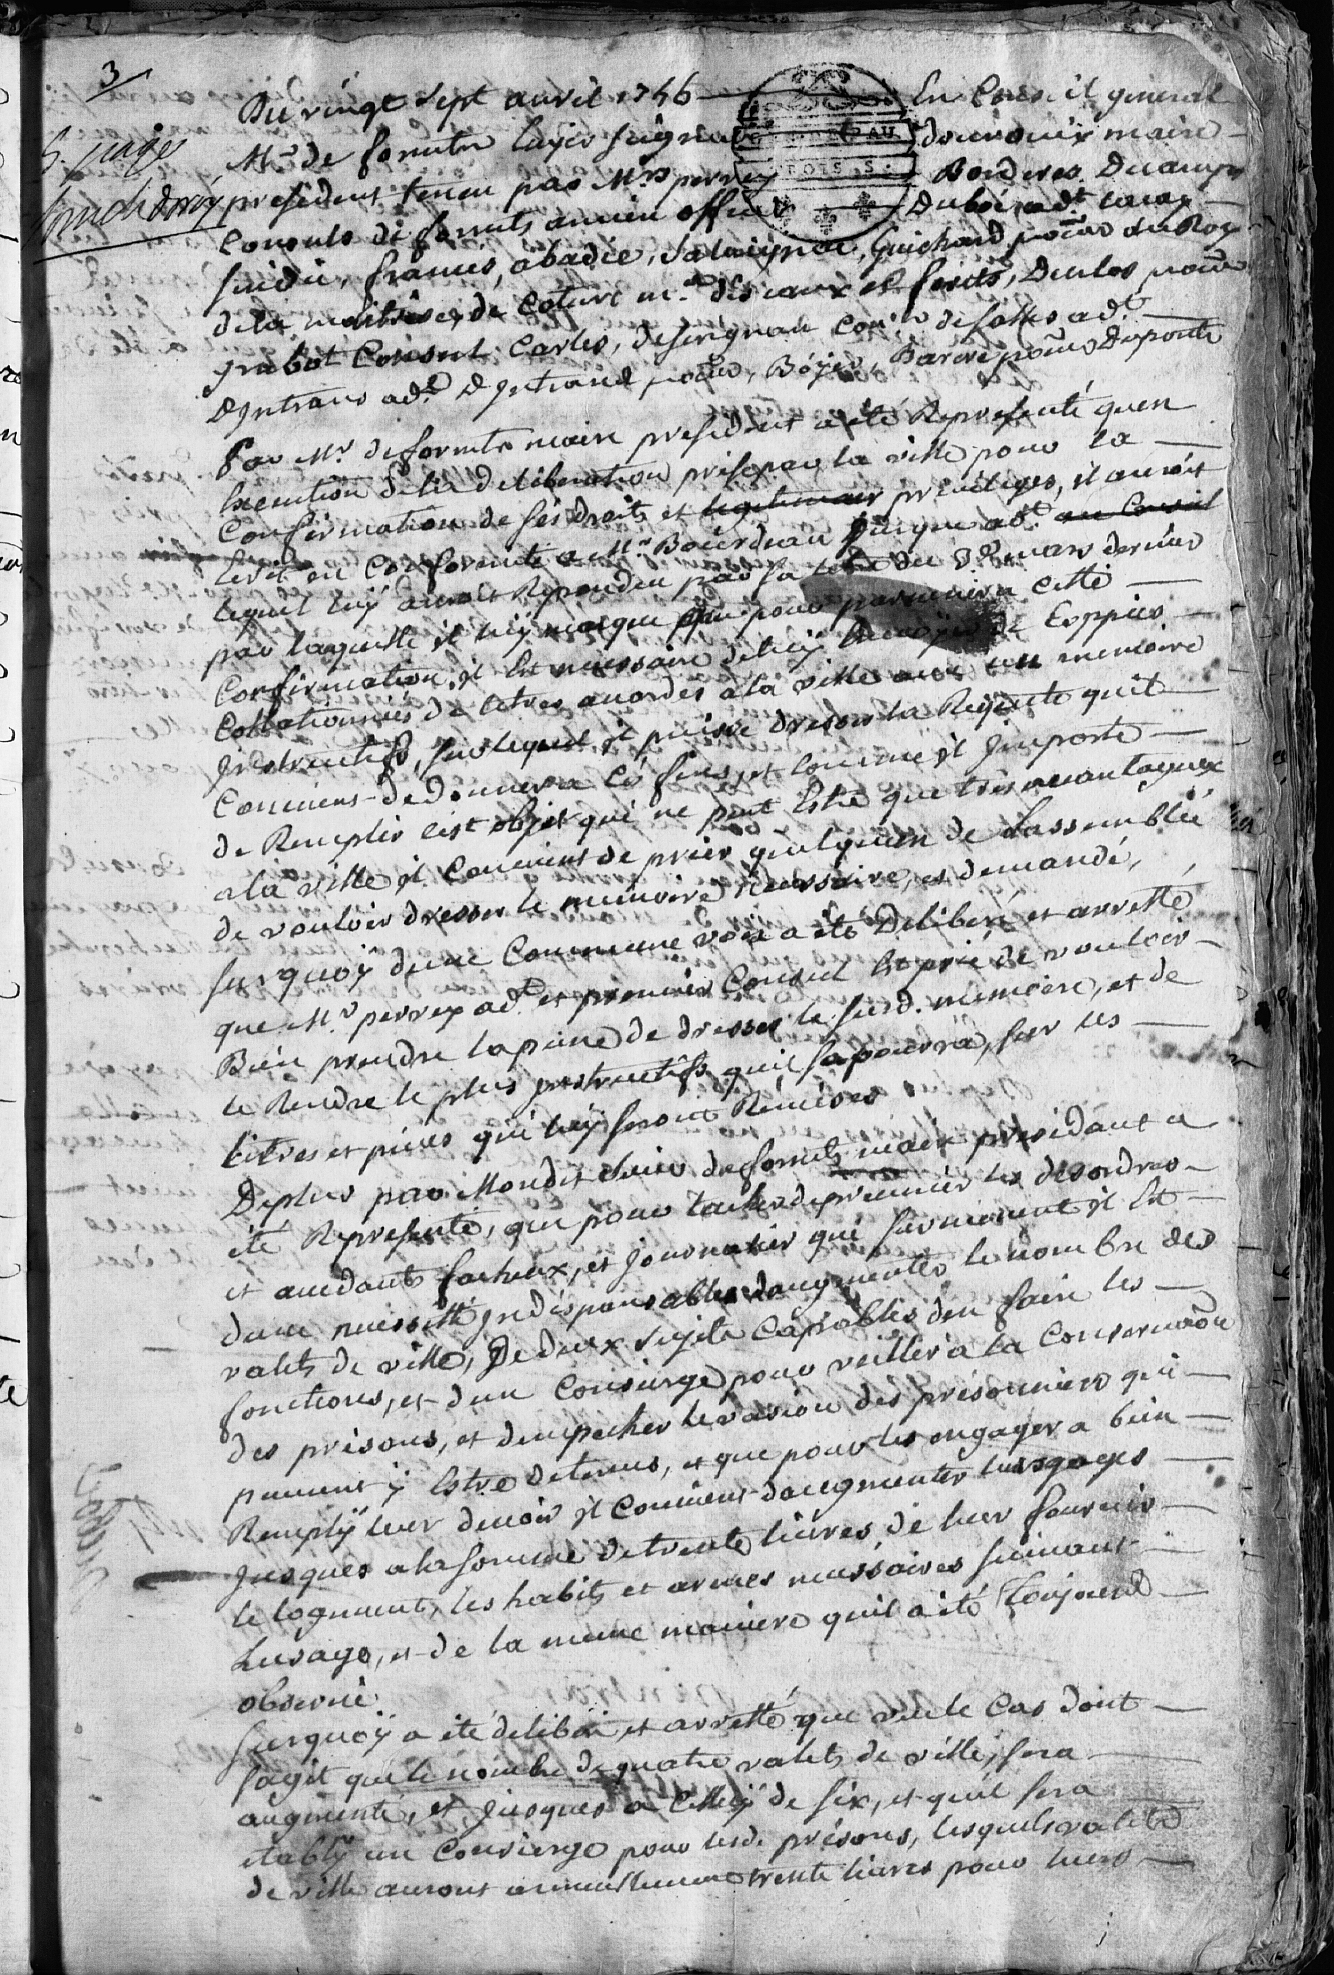 3
Du vingt sept avril 1746 En Conseil general
Mr. de formets layer seigneur douvouix maire
president tenu par Mrs perrey Borderes Ducamps
Consuls de formets ancien officier Dubois adt
francés, abadie, Salaignac, Guichard du Roy
de la maitrise, de Coture me. des eaux et forets, Duclos
grabot Consul Carles, de serignan de fossés adt.
Dintrans adt. Dintrans Boyer, Barere Duponte
Par Mr. de formets maire president a eté Representé quen
Execution de la deliberation prise par la ville pour la
Confirmation de ses droits et privileges, il auroit
Ecrit en Conformité a Mr. Bourdeau adt. au Conseil
lequel luy auroit Repondeu par sa letre du mars dernier
par laquelle il luy marque que pour parvenir a cette
Confirmation, il Est necessaire de luy Envoyer de Coppies
Collationnées de letres acordés a la ville avec un memoire
Instructifs, sur lequel il puisse dresser la Requete quil
Convient de donner a cés fins, et comme il Importe
de Remplir cést objet qui ne peut Estre que trés avantageux
a la ville il Convient de prier quelquun de Lassemblée
de vouloir dresser le memoire necessaire, et demandé,
sur quoÿ dune Commune voix a été Deliberé et arretté
que Mr. perrey adt. et premier Consul Est prié de vouloir
Bien prendre la peine de dresser le susd. memoire, et de
le Rendre le plus Instructifs quil se pourra, sur les
titres et pieces qui luÿ seront Remises
De plus par Mondit sieur de formets maire presidant a
été Representé, que pour tacher deprevenir les desordres
et accidants facheux, et Journalier qui surviennent il Est
dune necessitté Indispensable daugmenter le nombre des
valets de ville, de deux sujets Capables den faire les
fonctions, et dun Concierge pour veiller a la Conservaon
des prisons, et dempecher levasion des prisonniers qui
peuvent y Estre detenus, et que pour les engager a bien
Remplÿ leur devoir il Convient daugmenter leurs gages
Jusques a la somme de trente livres, de leur fournir
le logement, les habits et armes necessaires suivant
Lusage, et de la meme maniere quil a été toujours
observé.
surquoÿ a été deliberé, et arretté que veu le cas dont
sagit que le nombre de quatre valets de ville, sera
augmenté, et Jusques a Celluÿ de six, et quil sera
etablÿ un Concierge pour lesd. présons, lesquels valets
de ville auront annuellement trente livres pour leurs